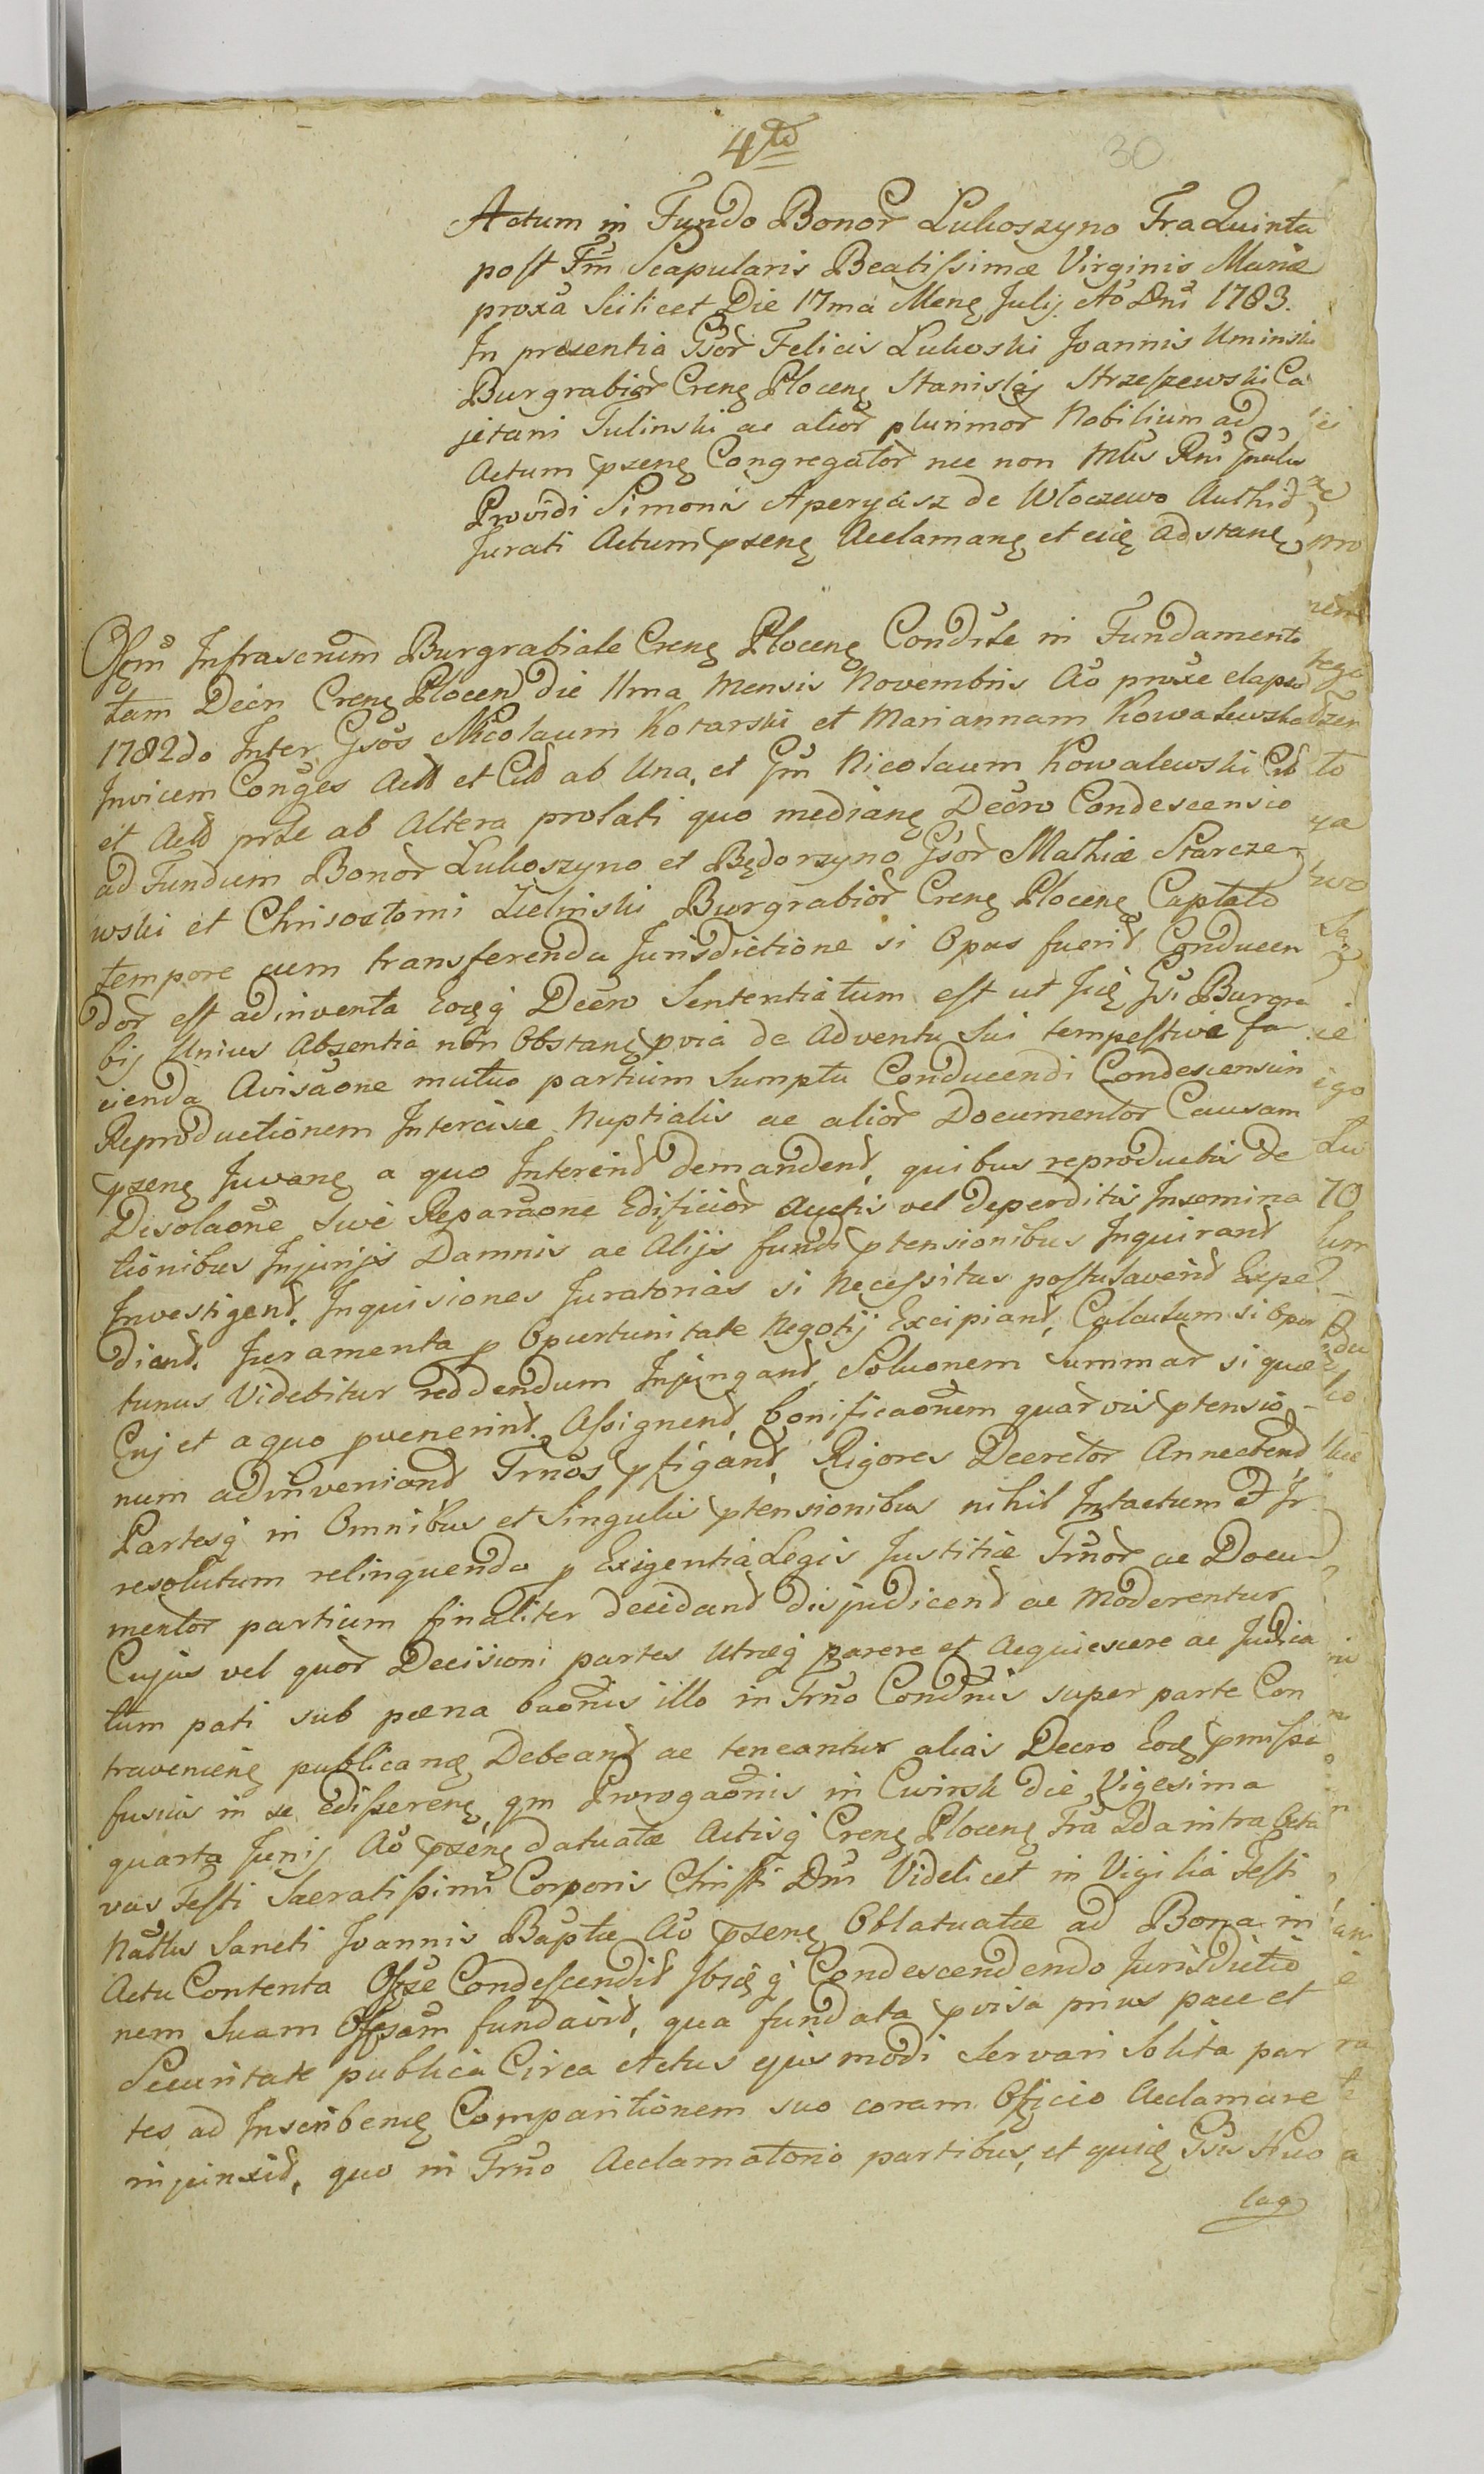 4to
30
Actum in Fundo Bonor Lukoszyno Fra Quinta
post Fm Scapularis Beatissimæ Virginis Mariæ
proxa Scilicet Die 17ma Mens Julij Ao Dni 1783.
In præsentia Gsor Felicis Lukoski Joannis Uminski
Burgrabior Crens Plocens Stanislaj Strzeszewski Ca
jetani Tulinski ac alior plurimor Nobilium ad
Actum psens Congregator nec non Mtis Rni Gnalis
Providi Simonis Aperyasz de Wloczewo Authid
Jurati Actum psens Acclamans et circ adstans
Offm Infrascrum Burgrabiale Crens Plocens Condste in Fundamento
tam Decri Crens Plocen die 11ma Mensis Novembris Ao proxe elapso
1782do Inter Gsos Nicolaum Kotarski et Mariannam Kowalewska
Invicem Conges Actt et Citt ab Una, et Gm Nicolaum Kowalewski Citt
et Actt prte ab Altera prolati quo medians Decro Condescensio
ad Fundum Bonor Lukoszyno et Będorzyno Gsor Mathiæ Starcze-
wski et Chrisostomi Zielinski Burgrabior Crens Plocens Captato
tempore cum transferenda Jurisdictione si Opus fuerit Conducen
dor est adinventa eoqs Decro Sententiatum est ut Jić Gsi Burgra
bij Unius Absentia non Obstans pvia de Adventu Sui tempestive fa-
cienda Avisaone mutuo partium Sumptu Conducendi Condescensum
Reproductionem Intercisæ Nuptialis ac alior Documentor Causam
psens Juvans a quo Intererit demandent, quibus reproductis de
Disolaone Sive Reparaone Edificior Auctis vel deperditis Insemina
tionibus Injurijs Damnis ac Alijs fundi ptensionibus Inquirant
Investigent. Inquisiones Juratorias si Necessitas postulaverit Expe
diant. Juramenta p Oportunitate Negotij Excipiant, Calculum si Opor
tunus Videbitur reddendum Injungant, Soluonem Summar si quæ
Cuj et a quo pvenerint. Assignent, bonificaonem quarvis ptensio
num adinveniant Trnos pfigant, Rigores Decretor Annectent
Partesq in Omnibus et Singulis ptensionibus nihil Intactum et Ir
resolutum relinquendo p Exigentia Legis Justitiæ Trnor ac Docu-
mentor partium finaliter decidant disjudicent ac Moderentur
Cujus vel quor Decisioni partes Utræq parere et Acquiescere ac Judica
tum pati sub pæna baonis illo in Trno Condnis super parte Con
traveniens publicans Debeant ac teneantur alias Decro Eoqs pmissa
fusius in se Edisserens qm Prorogaonis in Cwirsk die Vigesima
quarta Junij Ao psens datuatæ Actisq Crens Plocens Fra 2da intra Octa
vas Festi Sacratissimi Corporis Christi Dni Videlicet in Vigilia Festi
Nattis Sancti Joannis Baptæ Ao psens Oblatuatæ ad Bona in
Actu Contenta Offse Condescendit Ibiqs Condescendendo Jurisdictio
nem Suam Offsam fundavit, qua fundata pvisa prius pace et
Securitate publica Circa Actus ejusmodi Servari Solita par
tes ad Inscribens Comparitionem suo coram Officio Acclamare
injunxit, quo in Trno Acclamatorio partibus, et quić Gsis Nico
lao